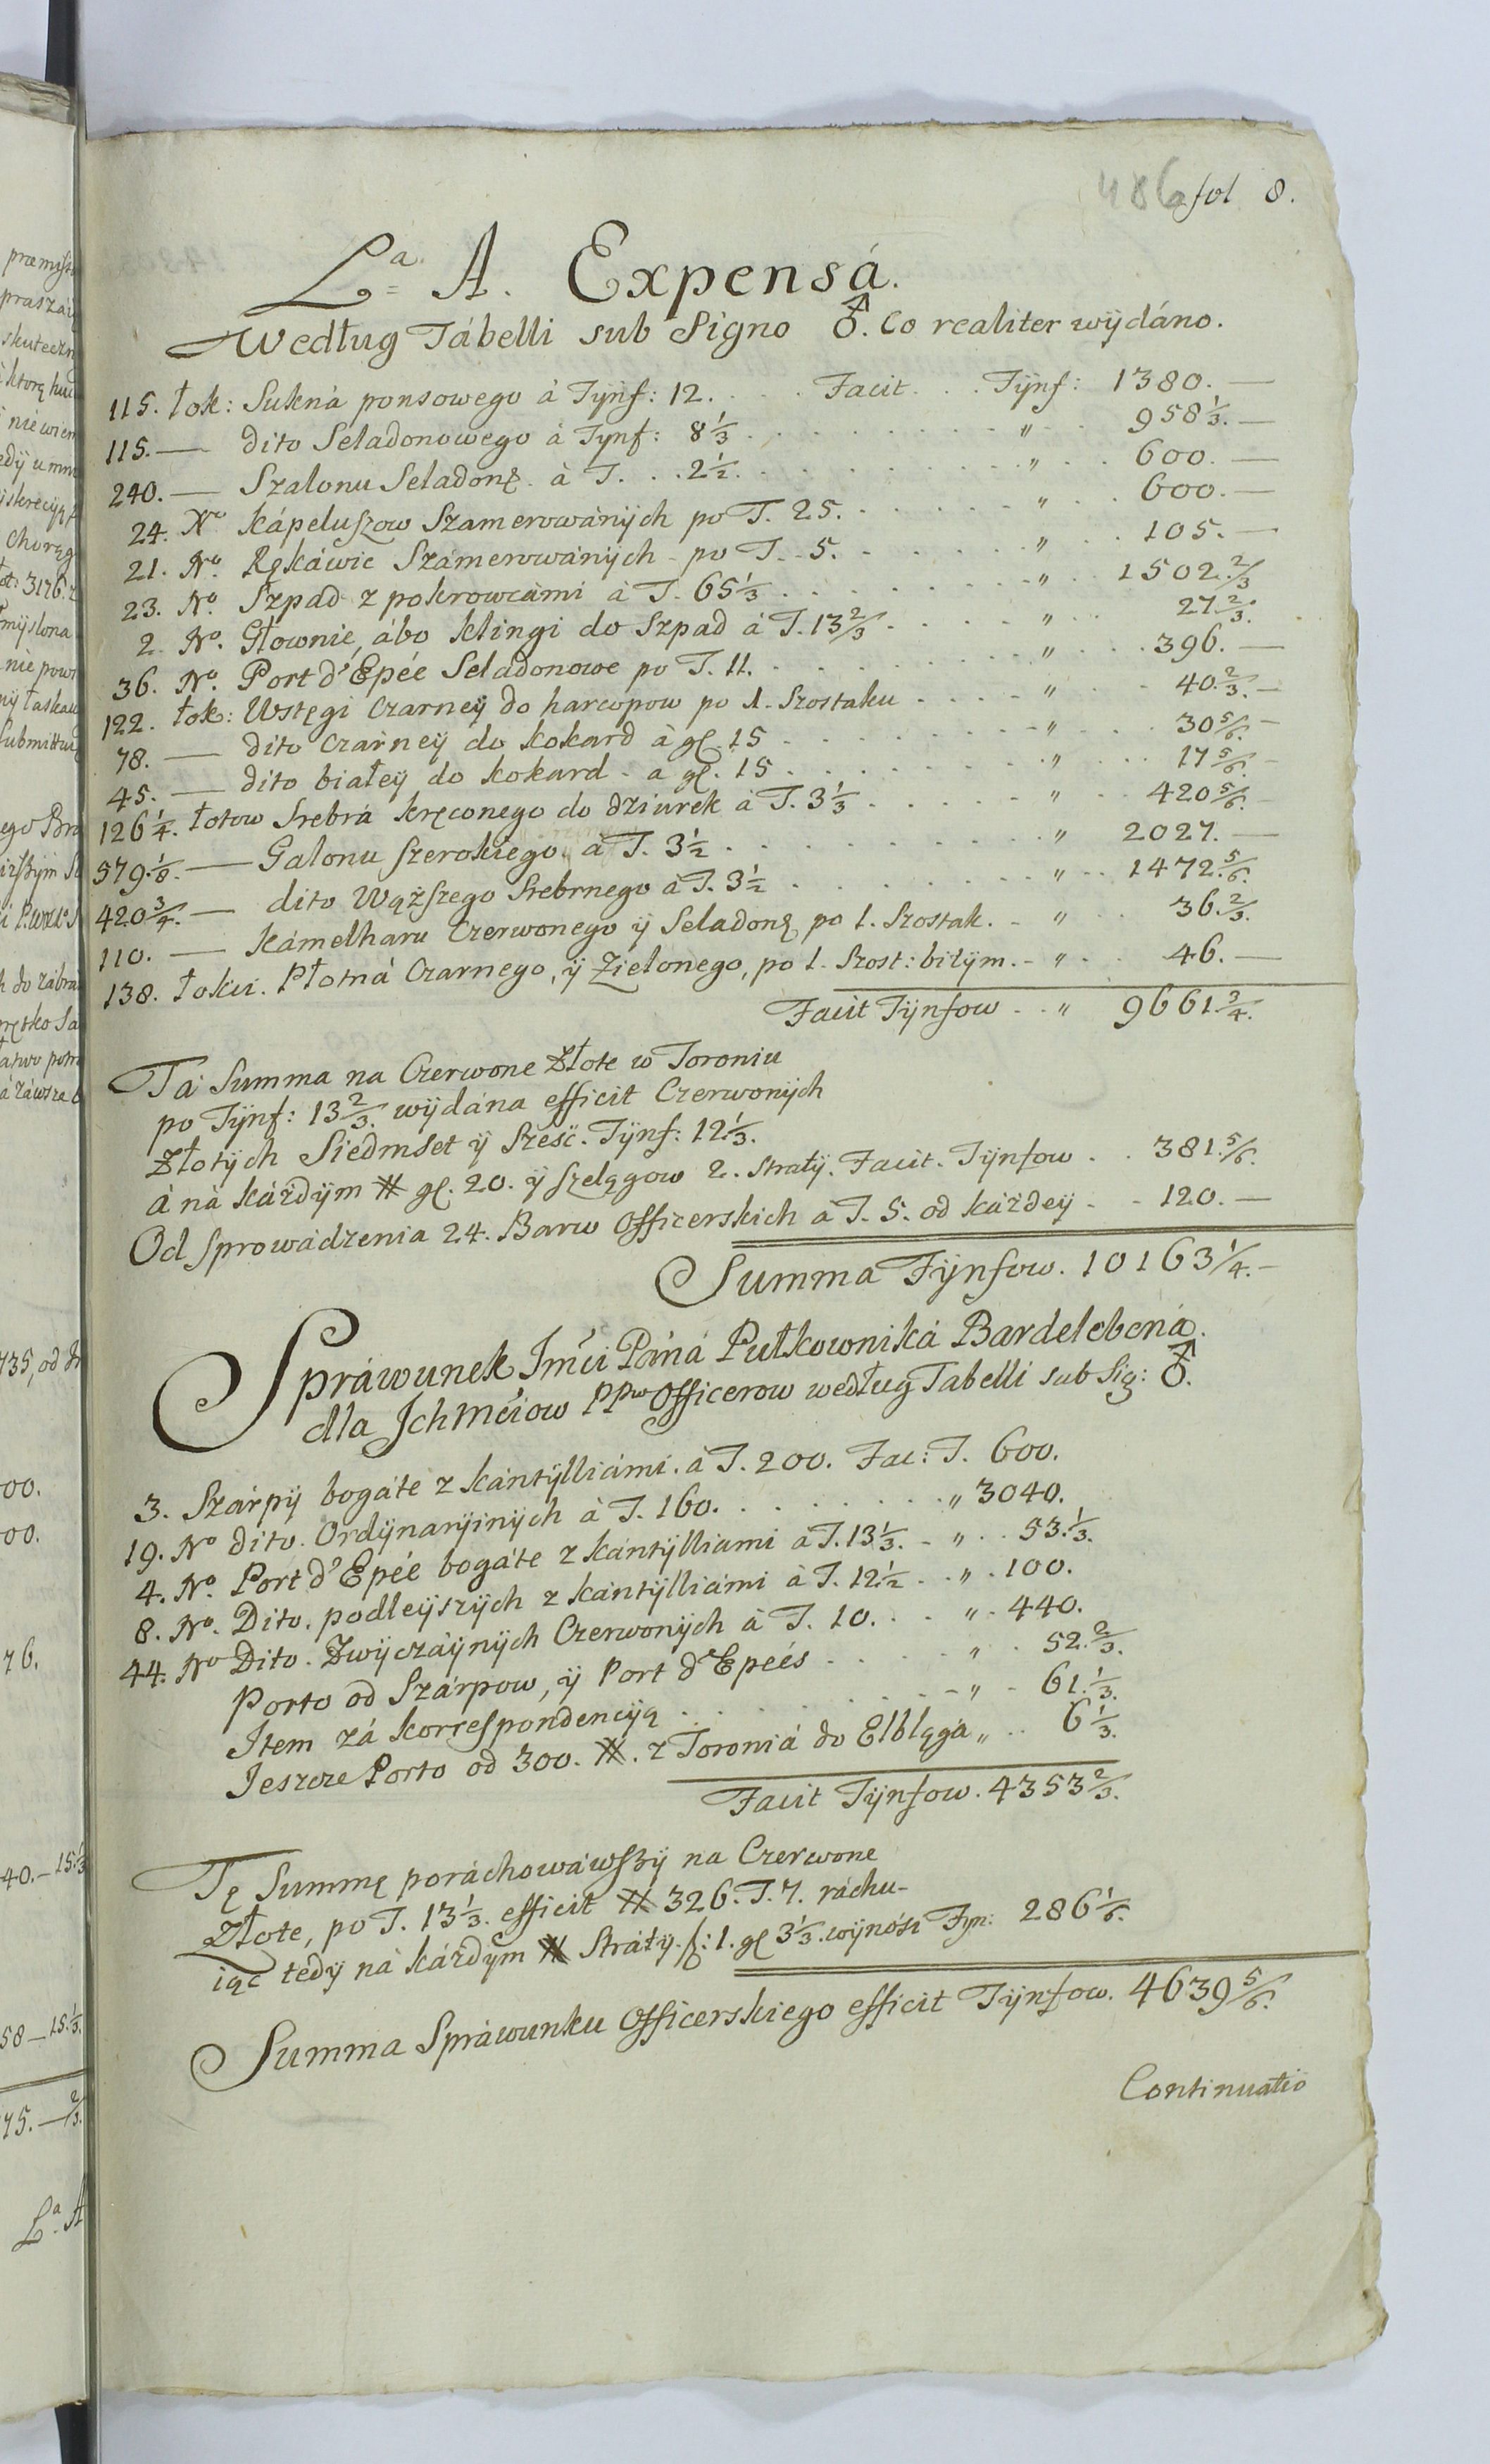 486
fol 8.
Lª A. Expensá.
Według Tábelli sub Signo ♂. Co realiter wÿdáno.
115. łok: Sukná ponsowego à Tÿnf: 12. . . . Facit . . . Tÿnf: 1380. —
115. — dito Seladonowego à Tÿnf: 8 1/3 . . . . . . . . . " . . 958 1/3. —
240. — Szalonu Seladonę. à T. . . 2 1/2. . . . . . . . . . " . . 600. —
24. Nº kápeluszow Szamerowánÿch po T. 25. . . . . . . " . . 600. —
21. Nº. Rękáwic Számerowánÿch - po T. - 5. . . . . . . " . . 105. —
23. Nº. Szpad z pokrowcámi à T. 65 1/3 . . . . . . . . " . . 1502. 2/3
2. Nº. Głownie, ábo klingi do Szpad á T. 13 2/3 . . . . " . . 27. 2/3.
36. Nº. Port d'Epée Seladonowe po T. 11. . . . . . . . " . . . 396. —
122. łok: Wstęgi Czarneÿ do harcopow po 1. Szostaku . . . . " . . 40. 2/3. —
78. — dito czarneÿ do kokard à gl. 15 . . . . . . . . " . . . 30 5/6. —
45. — dito białeÿ do kokard - a gl. 15 . . . . . . . . " . . . 17 5/6. —
126 1/4. łotow Srebrá kręconego do dziurek à T. 3 1/3 . . . . . " . . 420 5/6.
579. 1/8. — Galonu szerokiego. à T. 3 1/2 . . . . . . . . . " 2027. —
420 3/4. — dito Wąższego Srebrnego à T. 3 1/2 . . . . . . . " . . 1472. 5/6.
110. — kámelharu Czerwonego ÿ Seladonę po 1. Szostak. - " . . 36. 2/3.
138. łokci. Płotná Czarnego, ÿ Zielonego, po 1. Szost: bitÿm. - " . . 46. —
Facit Tÿnfow . . " 9661. 3/4.
Tá Summa na Czerwone Złote w Toroniu
po Tÿnf: 13 2/3. wÿdána efficit Czerwonÿch
Złotÿch Siedmset ÿ Sześć. Tÿnf: 12 1/3.
á ná káżdÿm # gl. 20. ÿ szelągow 2. stratÿ. Facit. Tÿnfow . . 381. 5/6.
Od sprowádzenia 24. Barw Officerskich a T. 5. od káżdeÿ - - 120. —
Summa Tÿnfow. 10163 1/4. —
Spráwunek Jmći Páná Pułkowniká Bardelebená.
dla Jchmćiow PPʷ Officerow według Tabelli sub Sig: ♂.
3. Szárpÿ bogáte z kántÿlliámi. à T. 200. Fac: T. 600.
19. Nº dito. Ordÿnarÿinÿch à T. 160. . . . . . . . . " 3040.
4. Nº. Port d'Epée bogáte z kántÿlliámi à T. 13 1/3. - " . . 53. 1/3.
8. Nº. Dito. podleÿszÿch z kántÿlliámi à T. 12 1/2 . . " . 100.
44. Nº Dito. Zwÿczáÿnÿch Czerwonÿch à T. 10. . . " . 440.
Porto od Szárpow, ÿ Port d'Epeés . . . . . " . 52. 2/3.
Item zá korrespondencÿą . . . . . . . . - " - 61. 1/3.
Jeszcze Porto od 300. #. z Toroniá do Elblągá " . . 6 1/3.
Facit Tÿnfow. 4353 2/3.
Tę Summę poráchowáwszÿ na Czerwone
Złote, po T. 13 1/3. efficit # 326. T. 7. ráchu-
iąc tedÿ ná káżdÿm # Strátÿ. f: 1. gl 3 1/3. wÿnosi Tÿn: 286 1/6.
Summa Spráwunku Officerskiego efficit Tÿnfow. 4639 5/6.
Continuatio